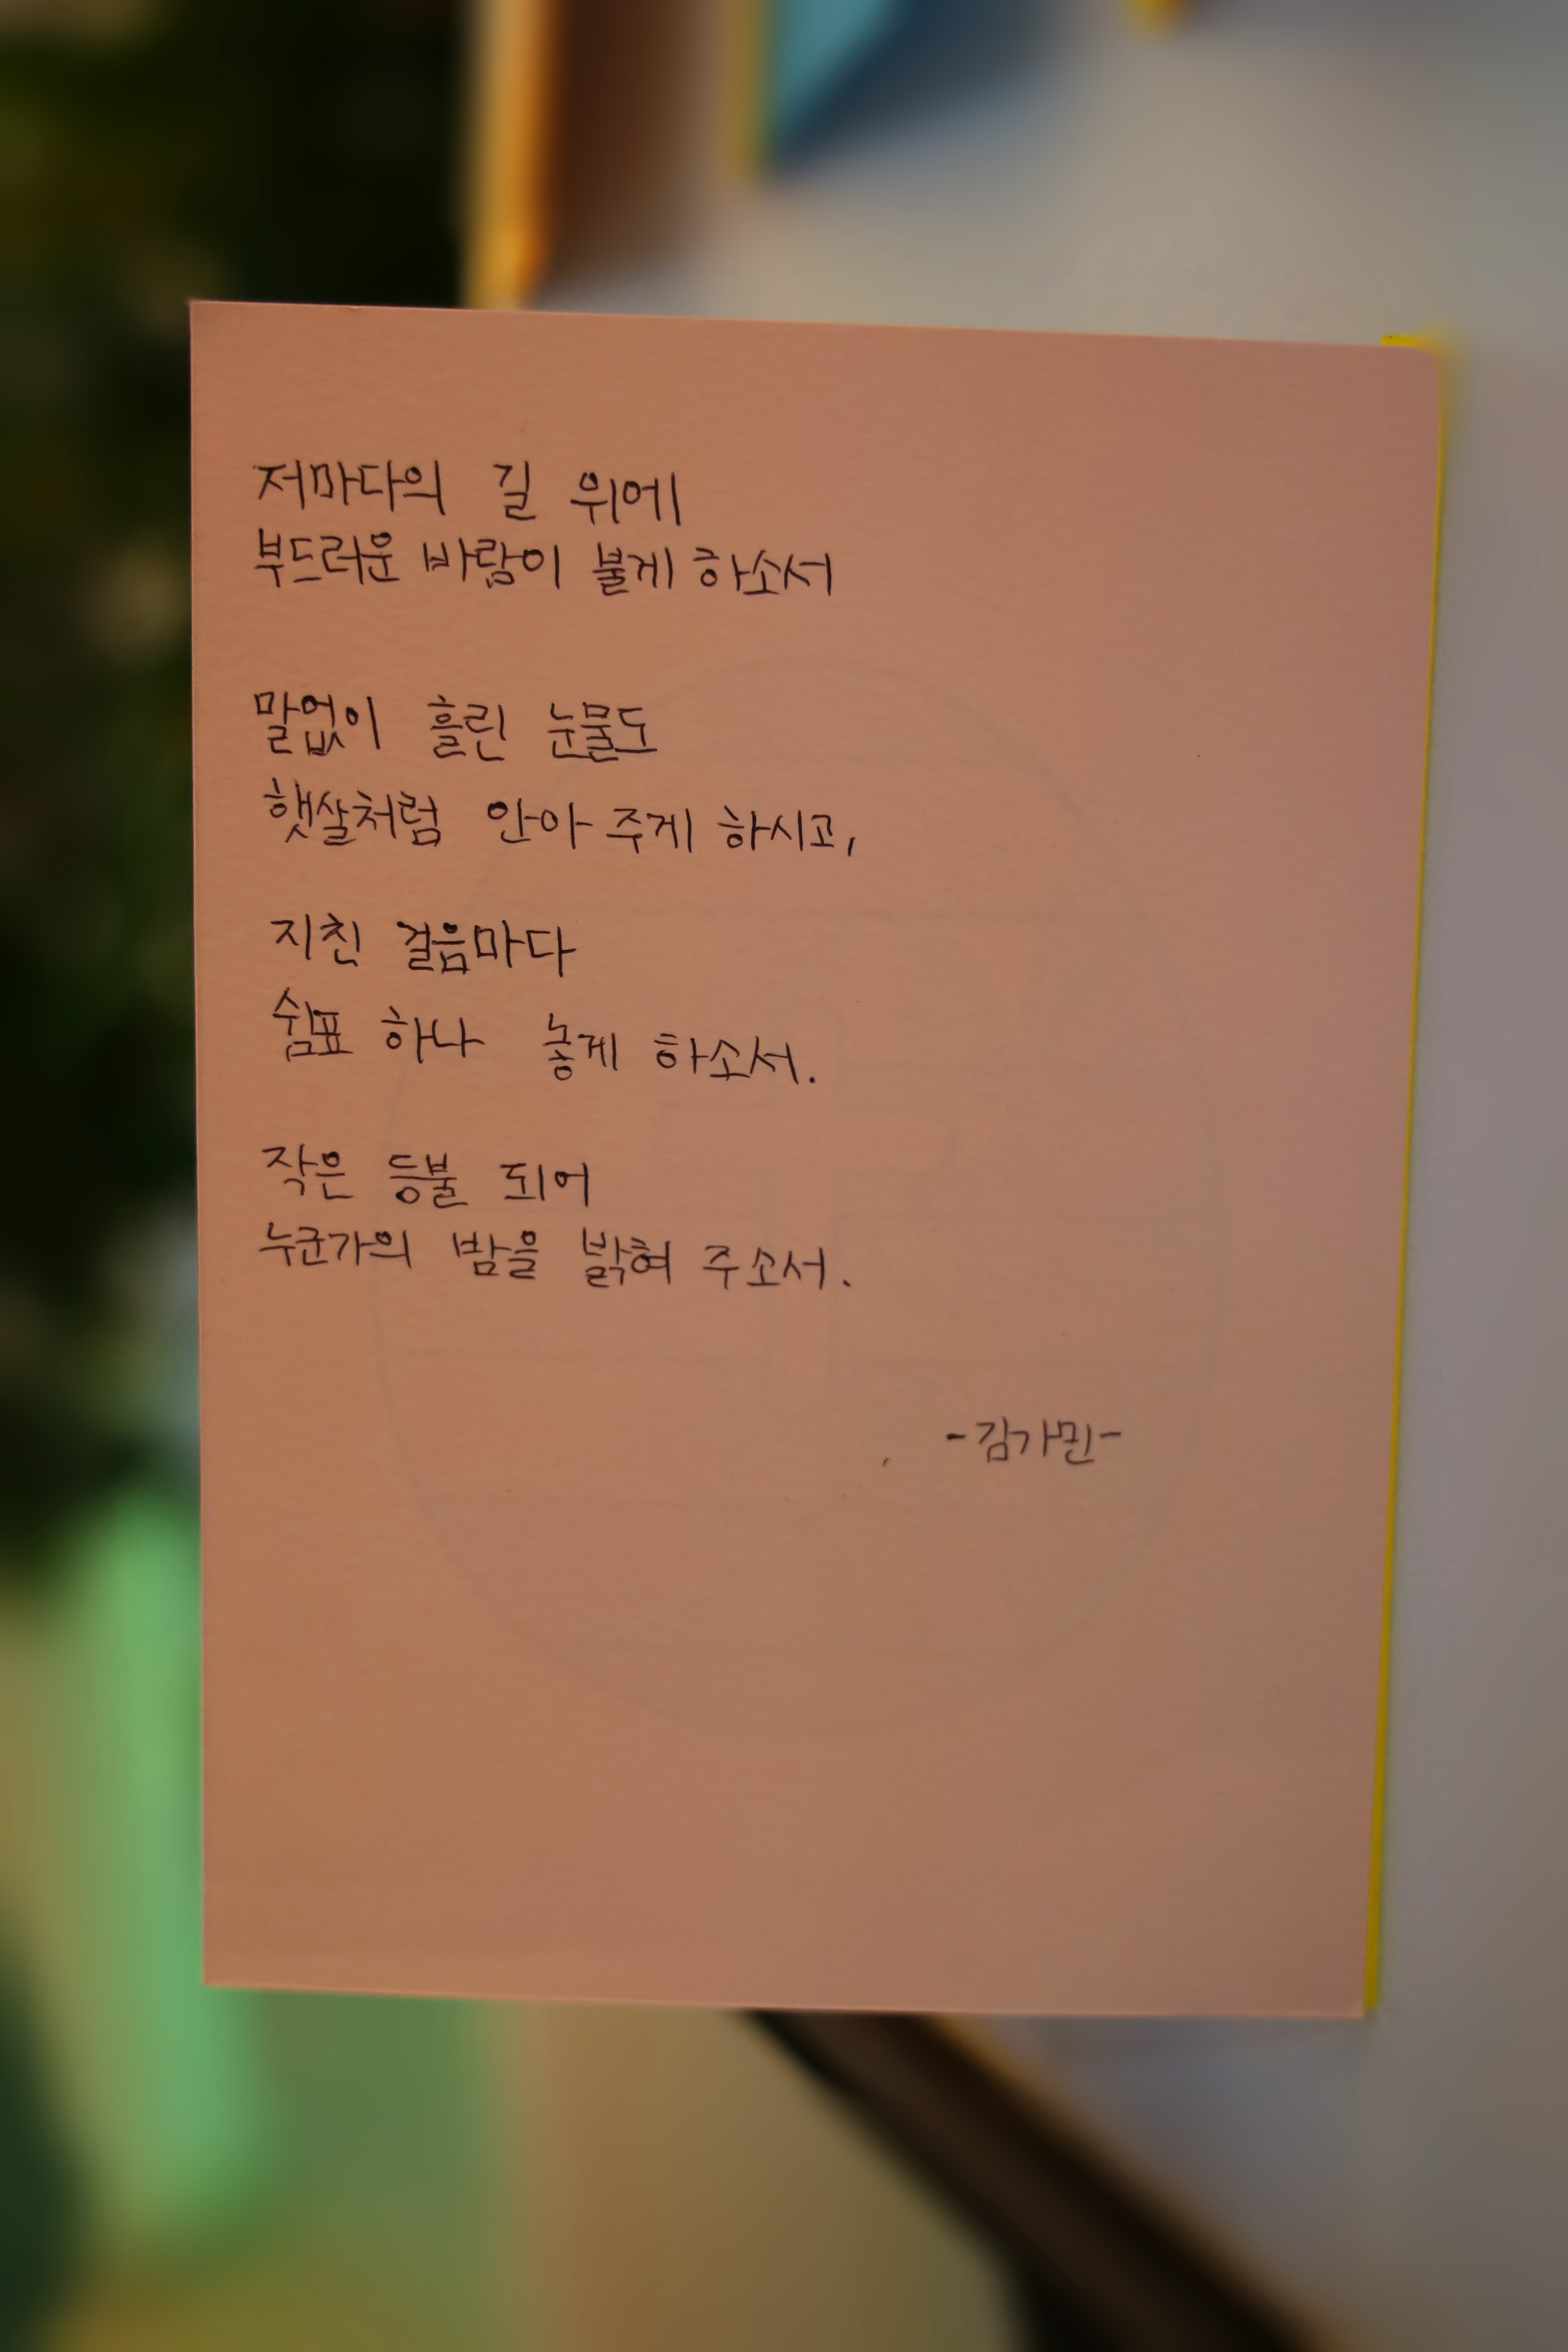 저마다의 길 위에
부드러운 바람이 불게 하소서
말없이 흘린 눈물도
햇살처럼 안아 주게 하시고,
지친 걸음마다
쉼표 하나 놓게 하소서.
작은 등불 되어
누군가의 밤을 밝혀 주소서.
-김가민-